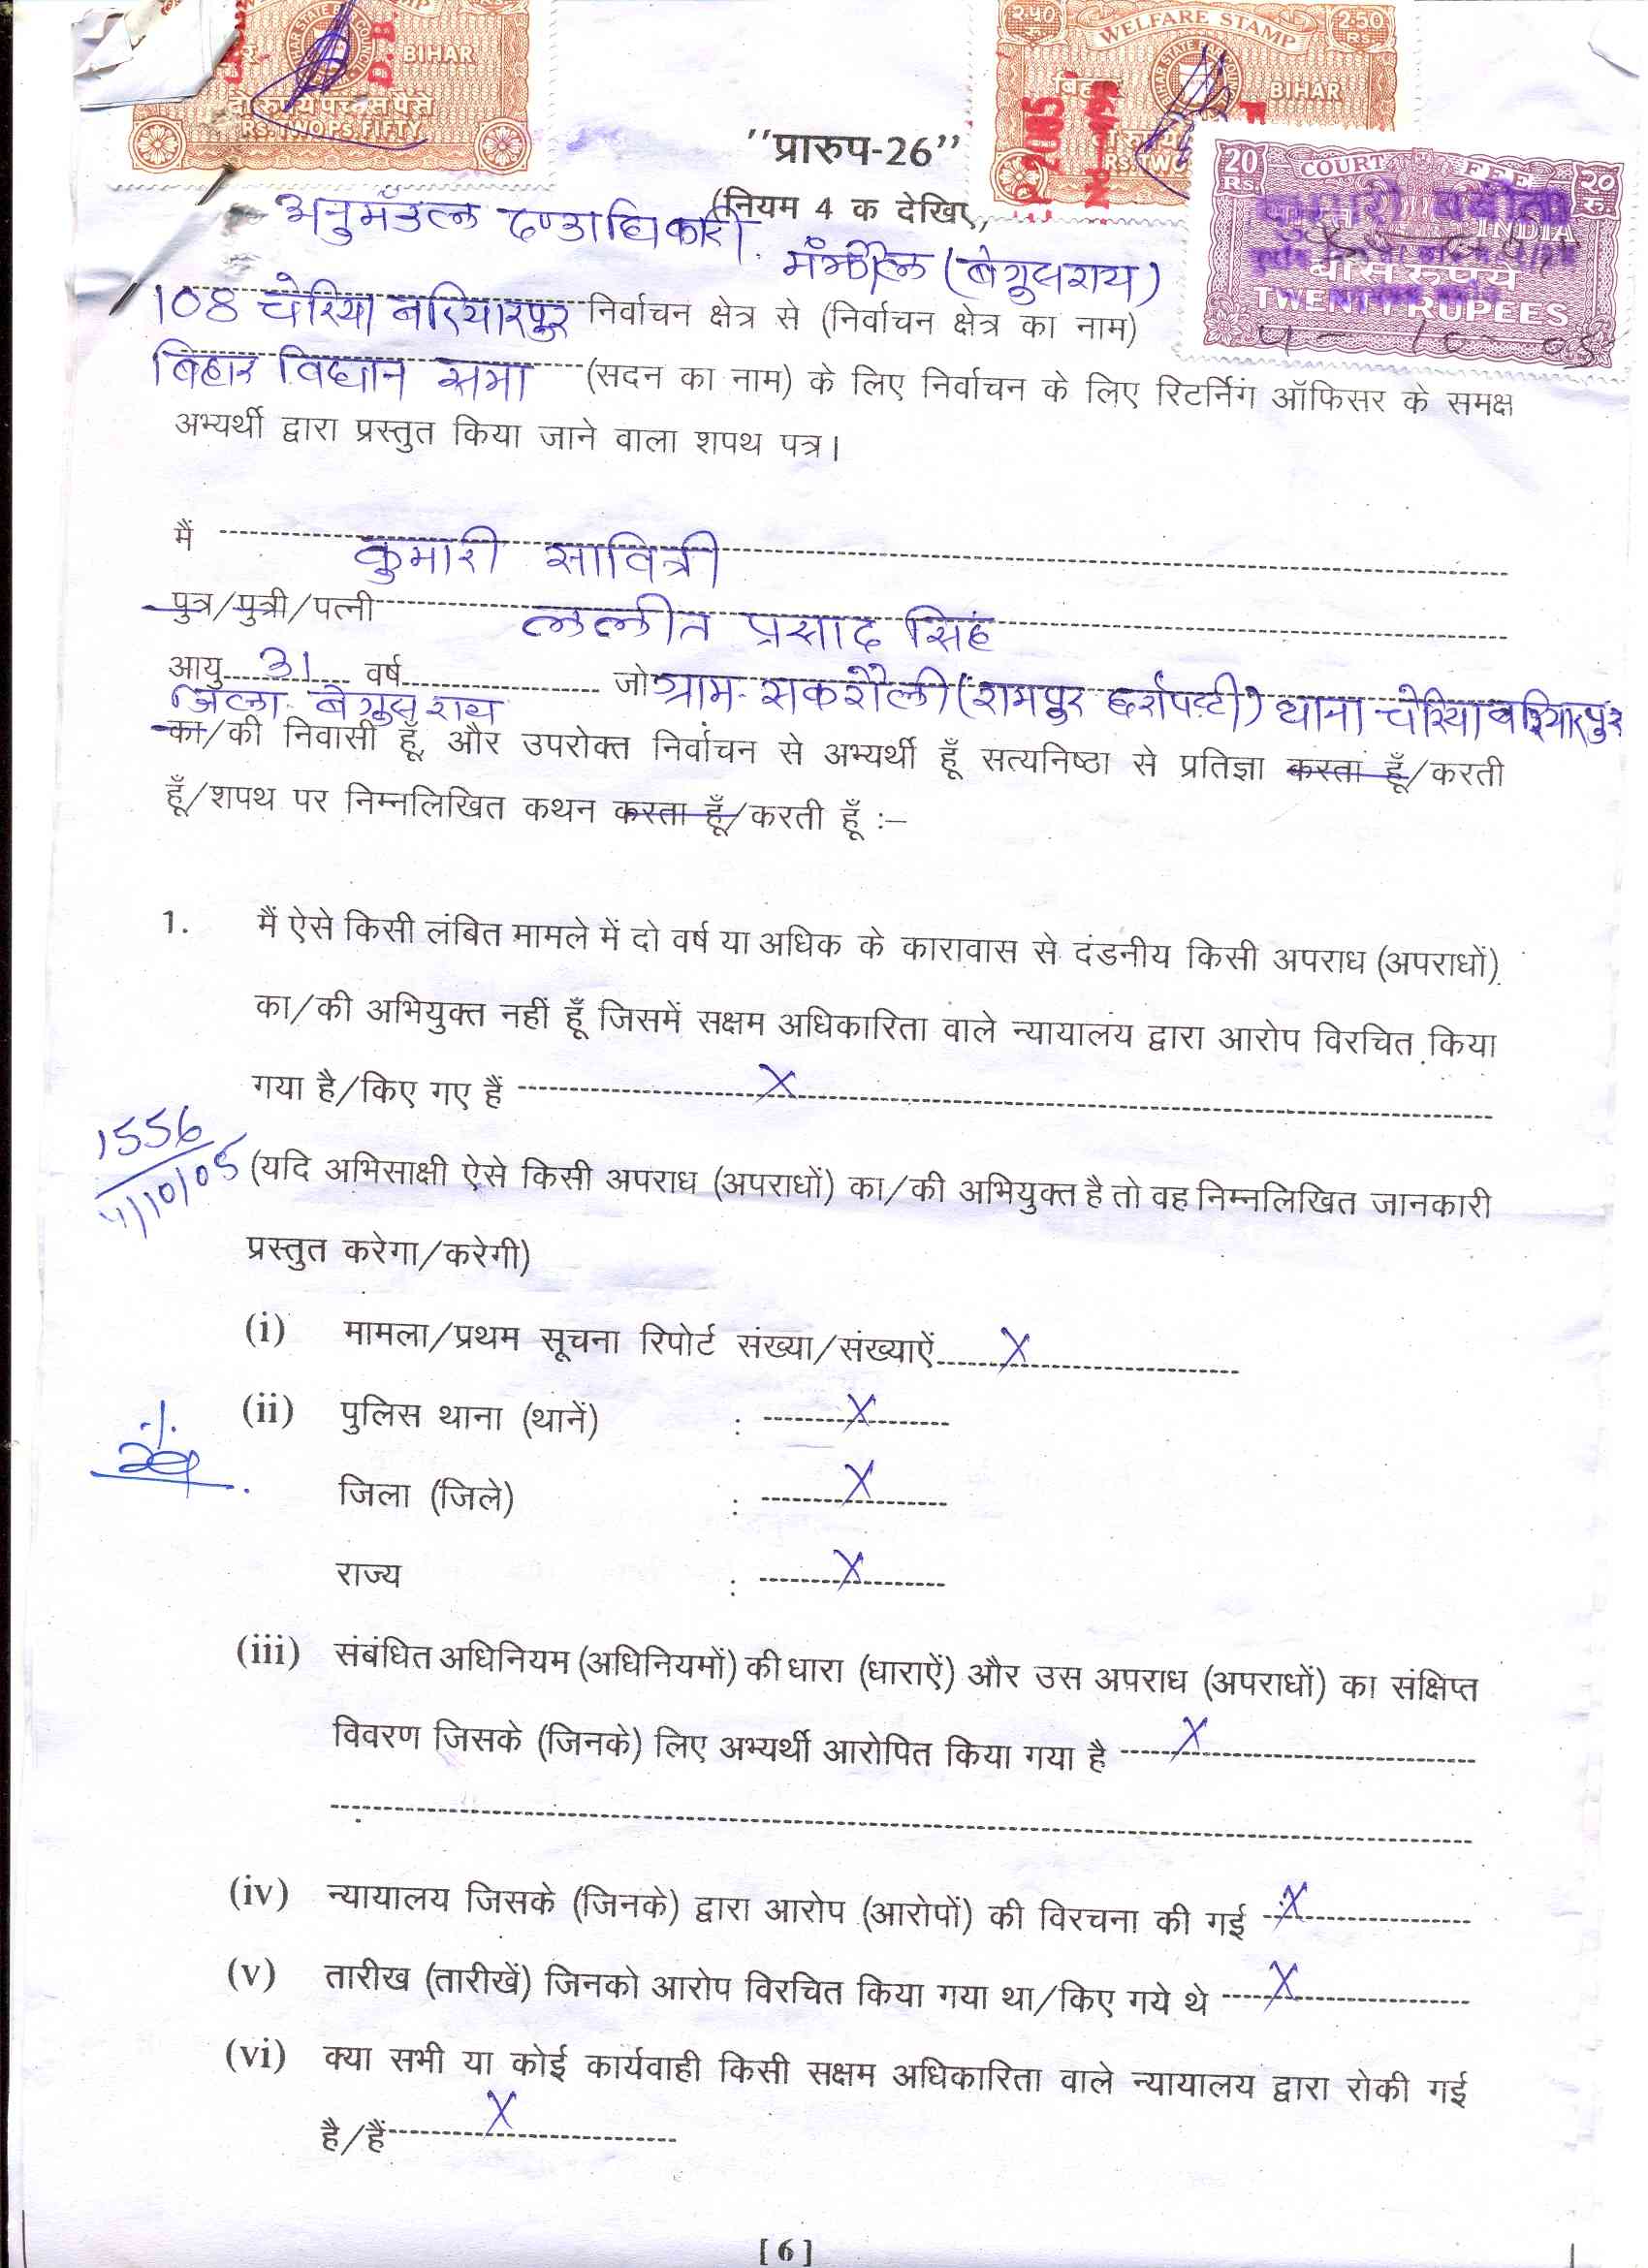 BIHAR
दो रुपये पचास पैसे
RS. TWO PS. FIFTY
२.५० रु. WELFARE STAMP 2.50 Rs.
BIHAR
20 Rs. COURT FEE २० रु.
INDIA
बीस रुपये
TWENTY RUPEES
''प्रारुप-26''
(नियम 4 क देखिए,
अनुमंडल दण्डाधिकारी, मंझौल (बेगूसराय)
108 चेरिया बरियारपुर निर्वाचन क्षेत्र से (निर्वाचन क्षेत्र का नाम)
बिहार विधान सभा (सदन का नाम) के लिए निर्वाचन के लिए रिटर्निंग ऑफिसर के समक्ष
अभ्यर्थी द्वारा प्रस्तुत किया जाने वाला शपथ पत्र।
मैं कुमारी सावित्री
पुत्र/पुत्री/पत्नी ललीत प्रसाद सिंह
आयु 31 वर्ष जो ग्राम- सकरौली (रामपुर घर्रापट्टी) थाना चेरिया बरियारपुर
जिला- बेगूसराय
का/की निवासी हूँ, और उपरोक्त निर्वाचन से अभ्यर्थी हूँ सत्यनिष्ठा से प्रतिज्ञा करता हूँ/करती
हूँ/शपथ पर निम्नलिखित कथन करता हूँ/करती हूँ :–
1. मैं ऐसे किसी लंबित मामले में दो वर्ष या अधिक के कारावास से दंडनीय किसी अपराध (अपराधों)
का/की अभियुक्त नहीं हूँ जिसमें सक्षम अधिकारिता वाले न्यायालय द्वारा आरोप विरचित किया
गया है/किए गए हैं X
1556
4/10/05
(यदि अभिसाक्षी ऐसे किसी अपराध (अपराधों) का/की अभियुक्त है तो वह निम्नलिखित जानकारी
प्रस्तुत करेगा/करेगी)
(i) मामला/प्रथम सूचना रिपोर्ट संख्या/संख्याऐं X
(ii) पुलिस थाना (थानें) : X
जिला (जिले) : X
राज्य : X
(iii) संबंधित अधिनियम (अधिनियमों) की धारा (धाराऐं) और उस अपराध (अपराधों) का संक्षिप्त
विवरण जिसके (जिनके) लिए अभ्यर्थी आरोपित किया गया है X
(iv) न्यायालय जिसके (जिनके) द्वारा आरोप (आरोपों) की विरचना की गई X
(v) तारीख (तारीखें) जिनको आरोप विरचित किया गया था/किए गये थे X
(vi) क्या सभी या कोई कार्यवाही किसी सक्षम अधिकारिता वाले न्यायालय द्वारा रोकी गई
है/हैं X
[ 6 ]